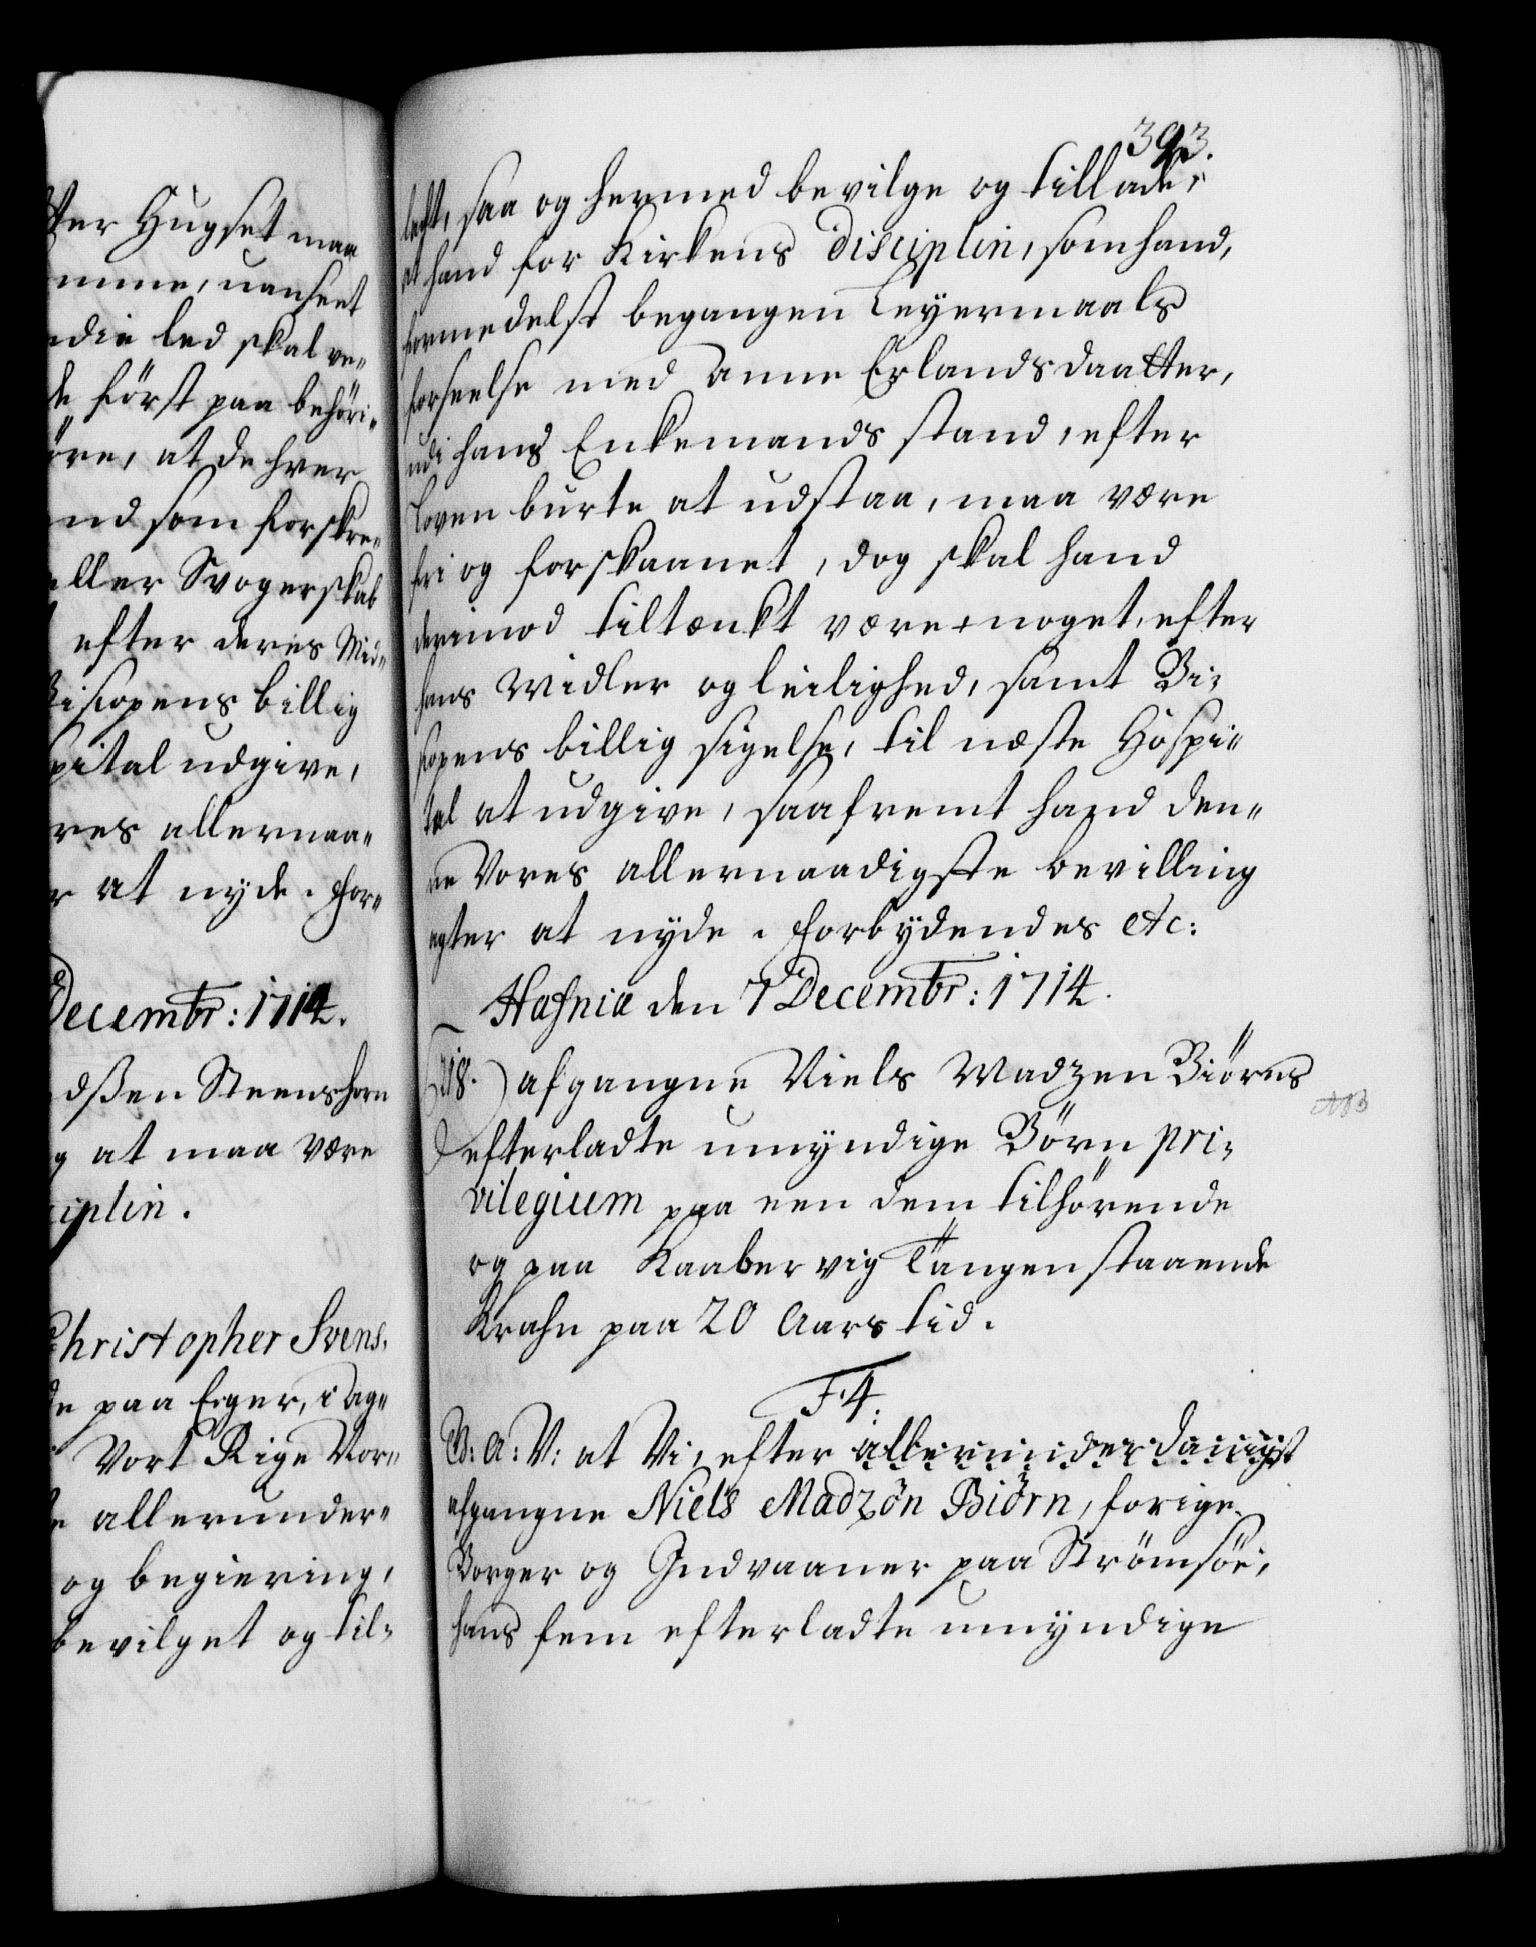 ster Hugset maa
mme, uanseet
ledie led skal ve-
de först paa behöri-
öre, at de hver
nd som forskre-
eller Svogerskab
efter deres Mid-
Biscopens billig
pital udgive,
res allernaa-
r at nyde. For-
Decembr: 1714.
dßen Steenshorn
g at maa være
ciplin.
Christopher Svens.
de paa Eger, i Ag-
Vort Rige Nor-
te allerunder-
og begiering,
bevilget og til-
393.
ladt, saa og hermed bevilge og tillade,
at hand for Kirkens Disciplin, som hand,
formedelst begangen Leyermaals
forseelse med Anne Erlandsdaatter,
udi hans Enkemands stand, efter
Loven burte at udstaa, maa være
fri og forskaanet, dog skal hand
derimod tiltænkt være noget, efter
hans Midler og leilighed, samt Bi-
scopens billig sigelse, til næste Hospi-
tal at udgive, saafremt hand den-
ne Vores allernaadigste bevilling
agter at nyde. Forbydendes etc:
Hafniæ den 7 Decembr: 1714.
218.) afgangne Niels Madzen Biörns
efterladte umyndige Börn pri-
vilegium paa een dem tilhörende
og paa Kaabervig Tangen staaende
Krahn paa 20 Aars tid.
F. 4.
G: A: V: at Vi, efter allerunderdanigst
afgangne Niels Madzön Biörn, forige
Borger og Indvaaner paa Strömsöe,
hans fem efterladte umyndige